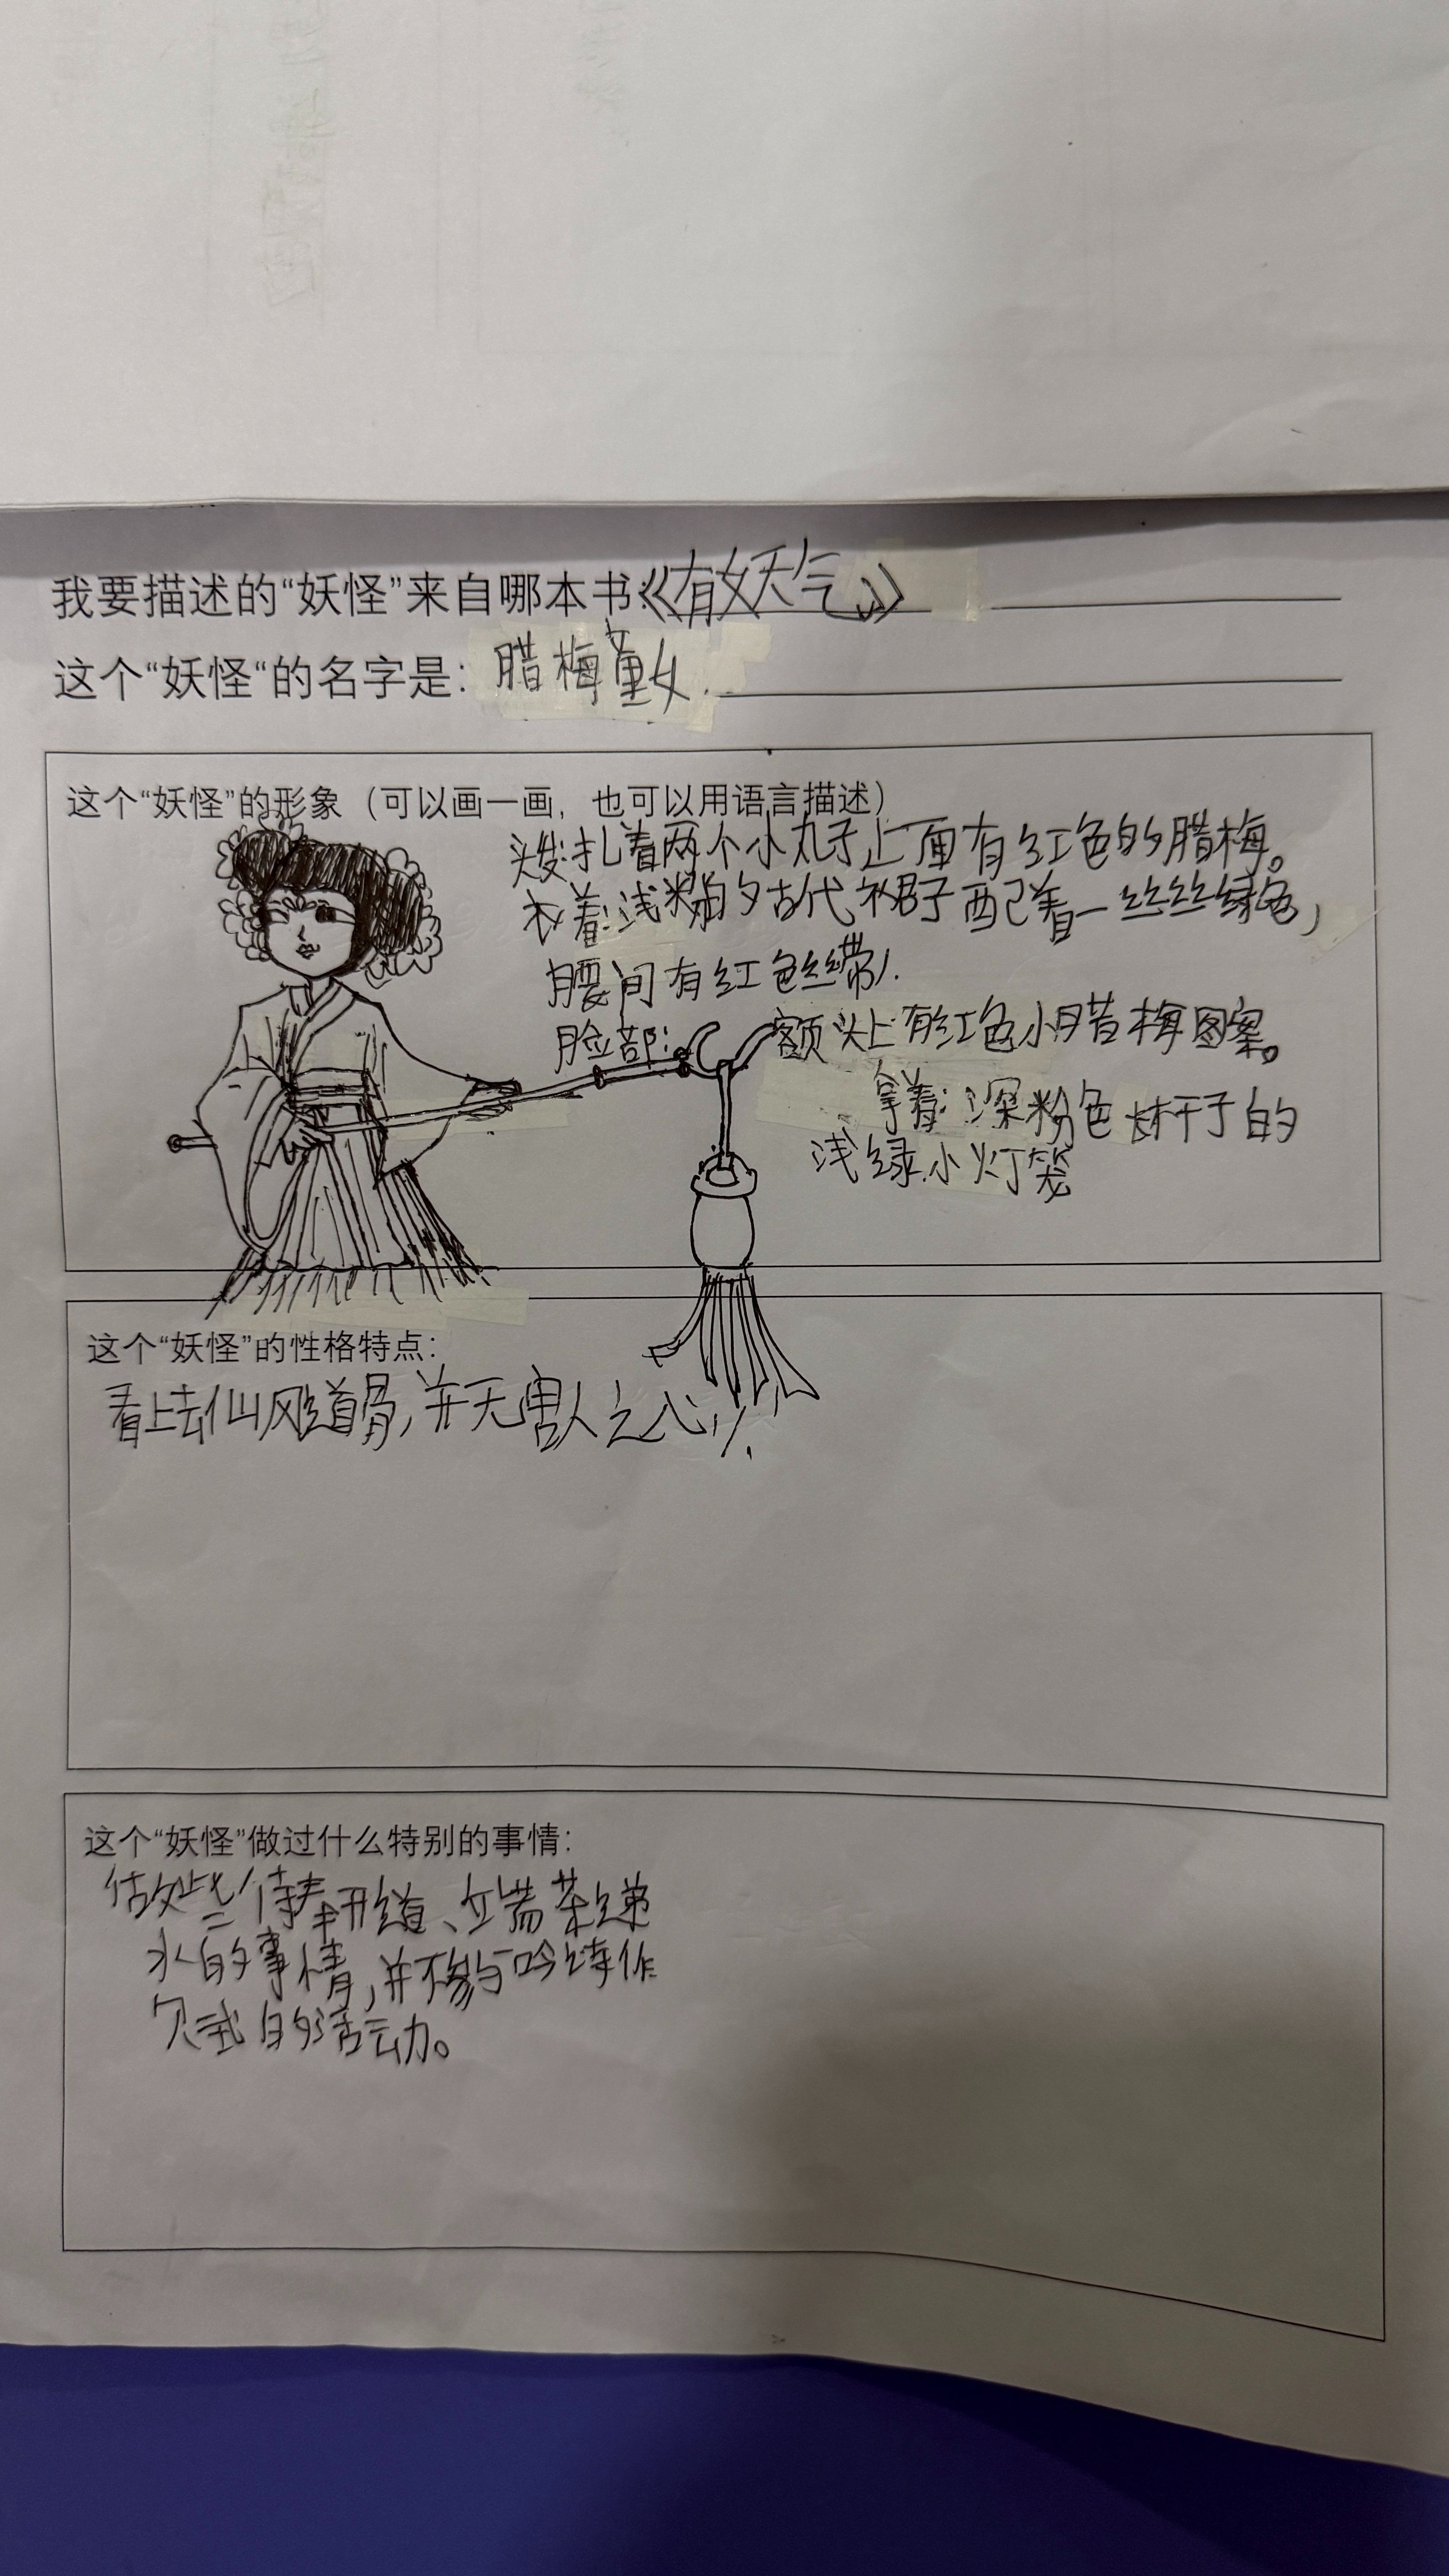 我要描述的“妖怪”来自哪本书：《有妖气》
这个“妖怪“的名字是：腊梅童女.
这个“妖怪”的形象（可以画一画，也可以用语言描述）
头发：扎着两个小丸子上面有红色的腊梅。
衣着：浅粉的古代裙子配着一丝丝绿色，
腰间有红色丝带.
脸部：额头上有红色小腊梅图案。
拿着：深粉色杆子的
浅绿小灯笼
这个“妖怪”的性格特点：
看上去仙风道骨，并无害人之心.
这个“妖怪”做过什么特别的事情：
做些侍奉引道、端茶递
水的事情，并不参与吟诗作
的活动。